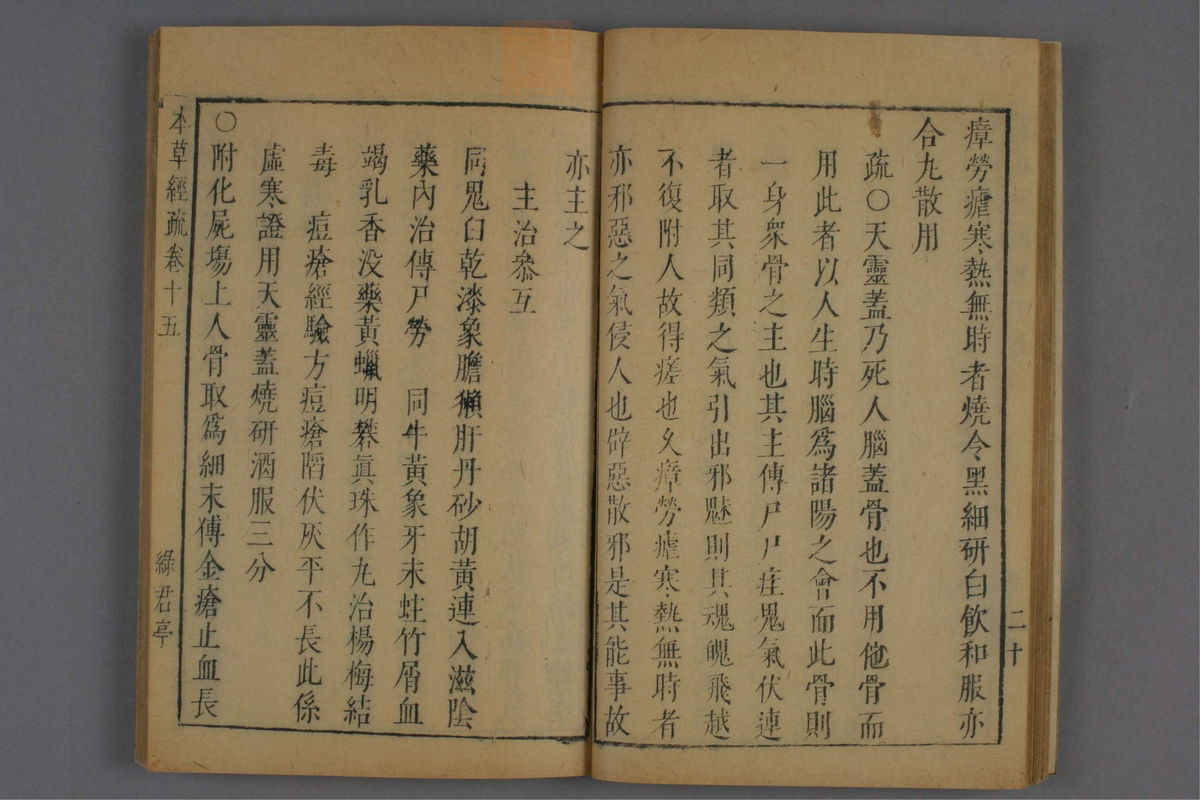 瘴勞瘧寒熱無時者燒令黑細研白飲和服亦
合丸散用
疏〇天靈蓋乃死人腦蓋骨也不用他骨而
用此者以人生時腦爲諸陽之會而此骨則
一身衆骨之主也其主傳尸尸疰鬼氣伏連
者取其同類之氣引出邪魅則其魂魄飛越
不復附人故得瘥也久瘴勞瘧寒熱無時者
亦邪惡之氣侵人也辟惡散邪是其能事故
二十
亦主之
主治叅互
同鬼臼乾漆象膽獺肝丹砂胡黃連入滋陰
藥內治傳尸勞　同牛黃象牙末蛀竹屑血
竭乳香没藥黃蠟明礬眞珠作丸治楊梅結
毒　痘瘡經驗方痘瘡䧟伏灰平不長此係
虛寒證用天靈蓋燒研酒服三分
〇附化屍塲上人骨取爲細末傅金瘡止血長
本草經疏卷十五
綠君亭